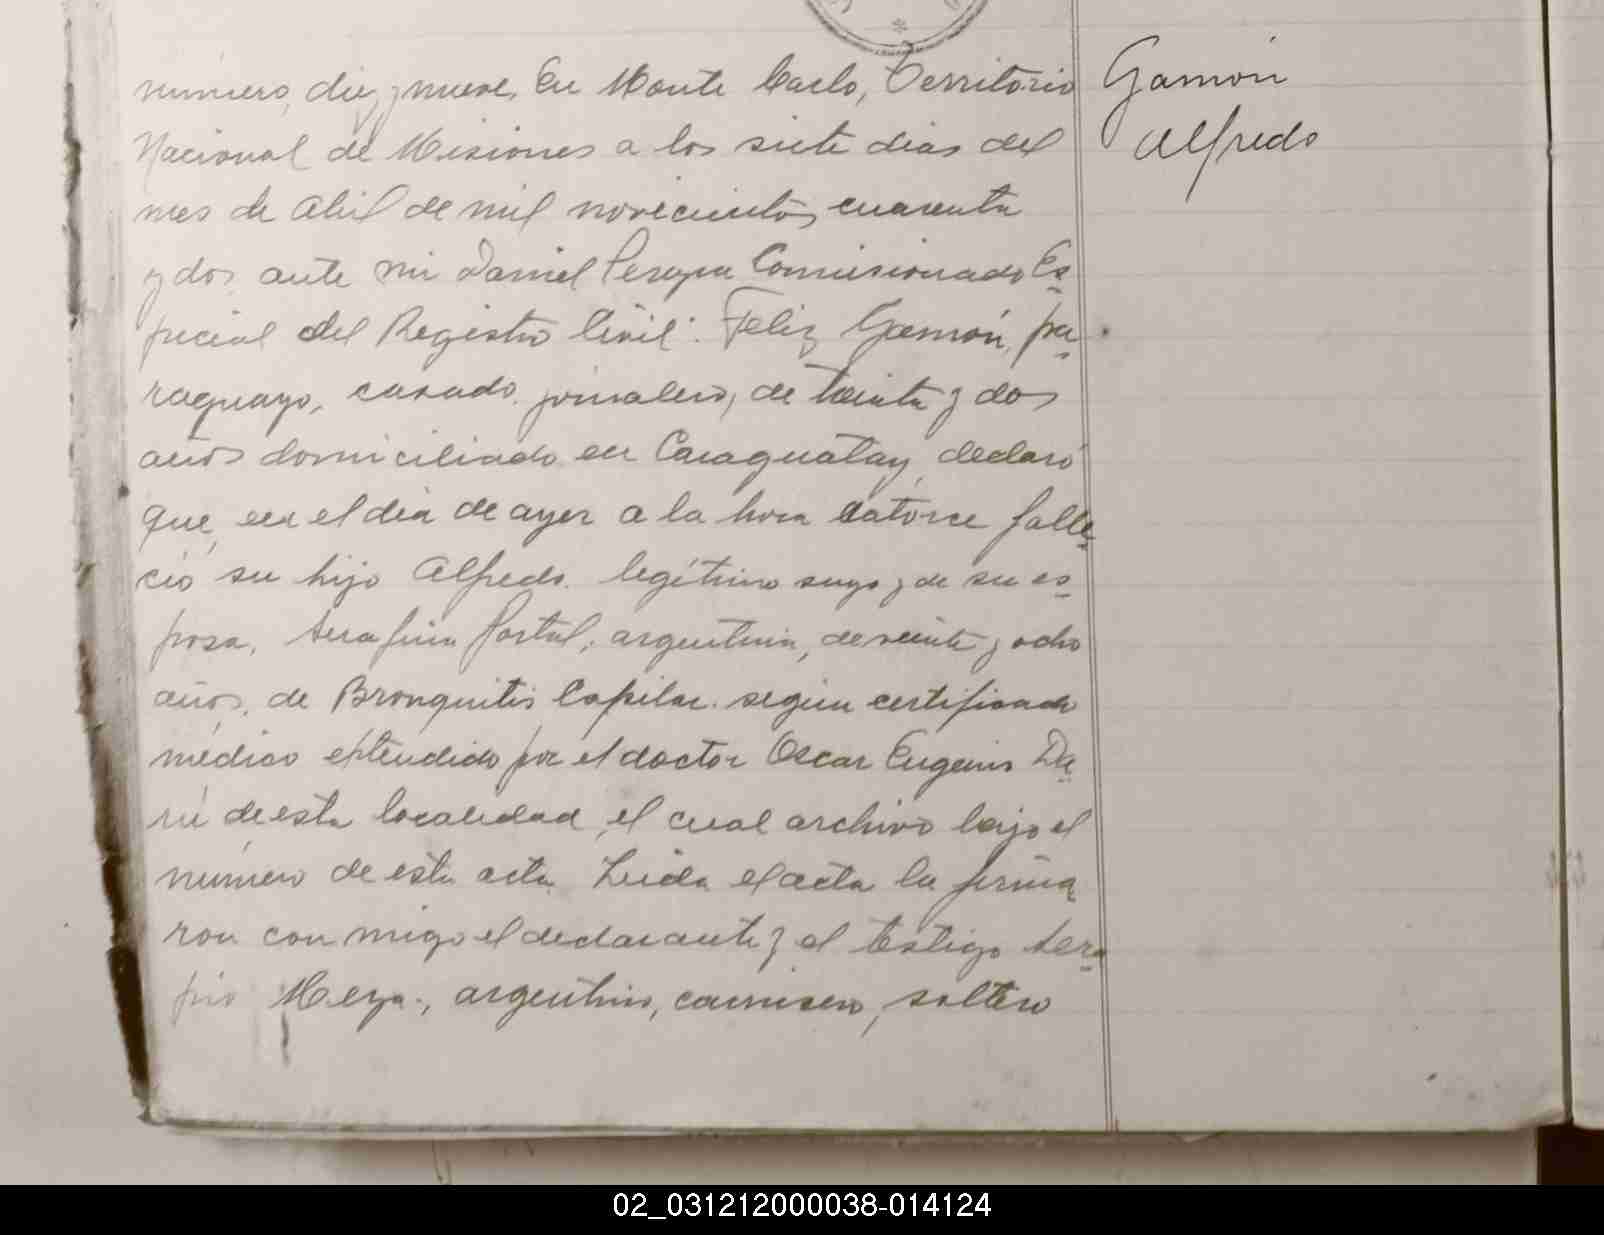 número, diez y nueve. En Monte Carlo, Territorio
Nacional de Misiones a los siete dias del
mes de Abril de mil novecientos cuarenta
y dos, ante mi Daniel Pereyra Comisionado Es-
pecial del Registro Civil: Feliz Gamón, pa-
raguayo, casado, jornalero, de treinta y dos
años domiciliado en Caraguatay, declaró
que, en el dia de ayer a la hora catorce falle-
ció su hijo Alfredo. legítimo suyo y de su es-
posa, Serafina Portal, argentina, de veinte y ocho
años, de Bronquitis Capilar. según certificado
médico extendido por el doctor Oscar Eugenio Da-
rú de esta localidad, el cual archivo bajo el
número de esta acta. Leida el acta la firma-
ron con migo el declarante y el testigo Sera-
pio Meza., argentino, carnicero, soltero
Gamón
Alfredo
02_031212000038-014124